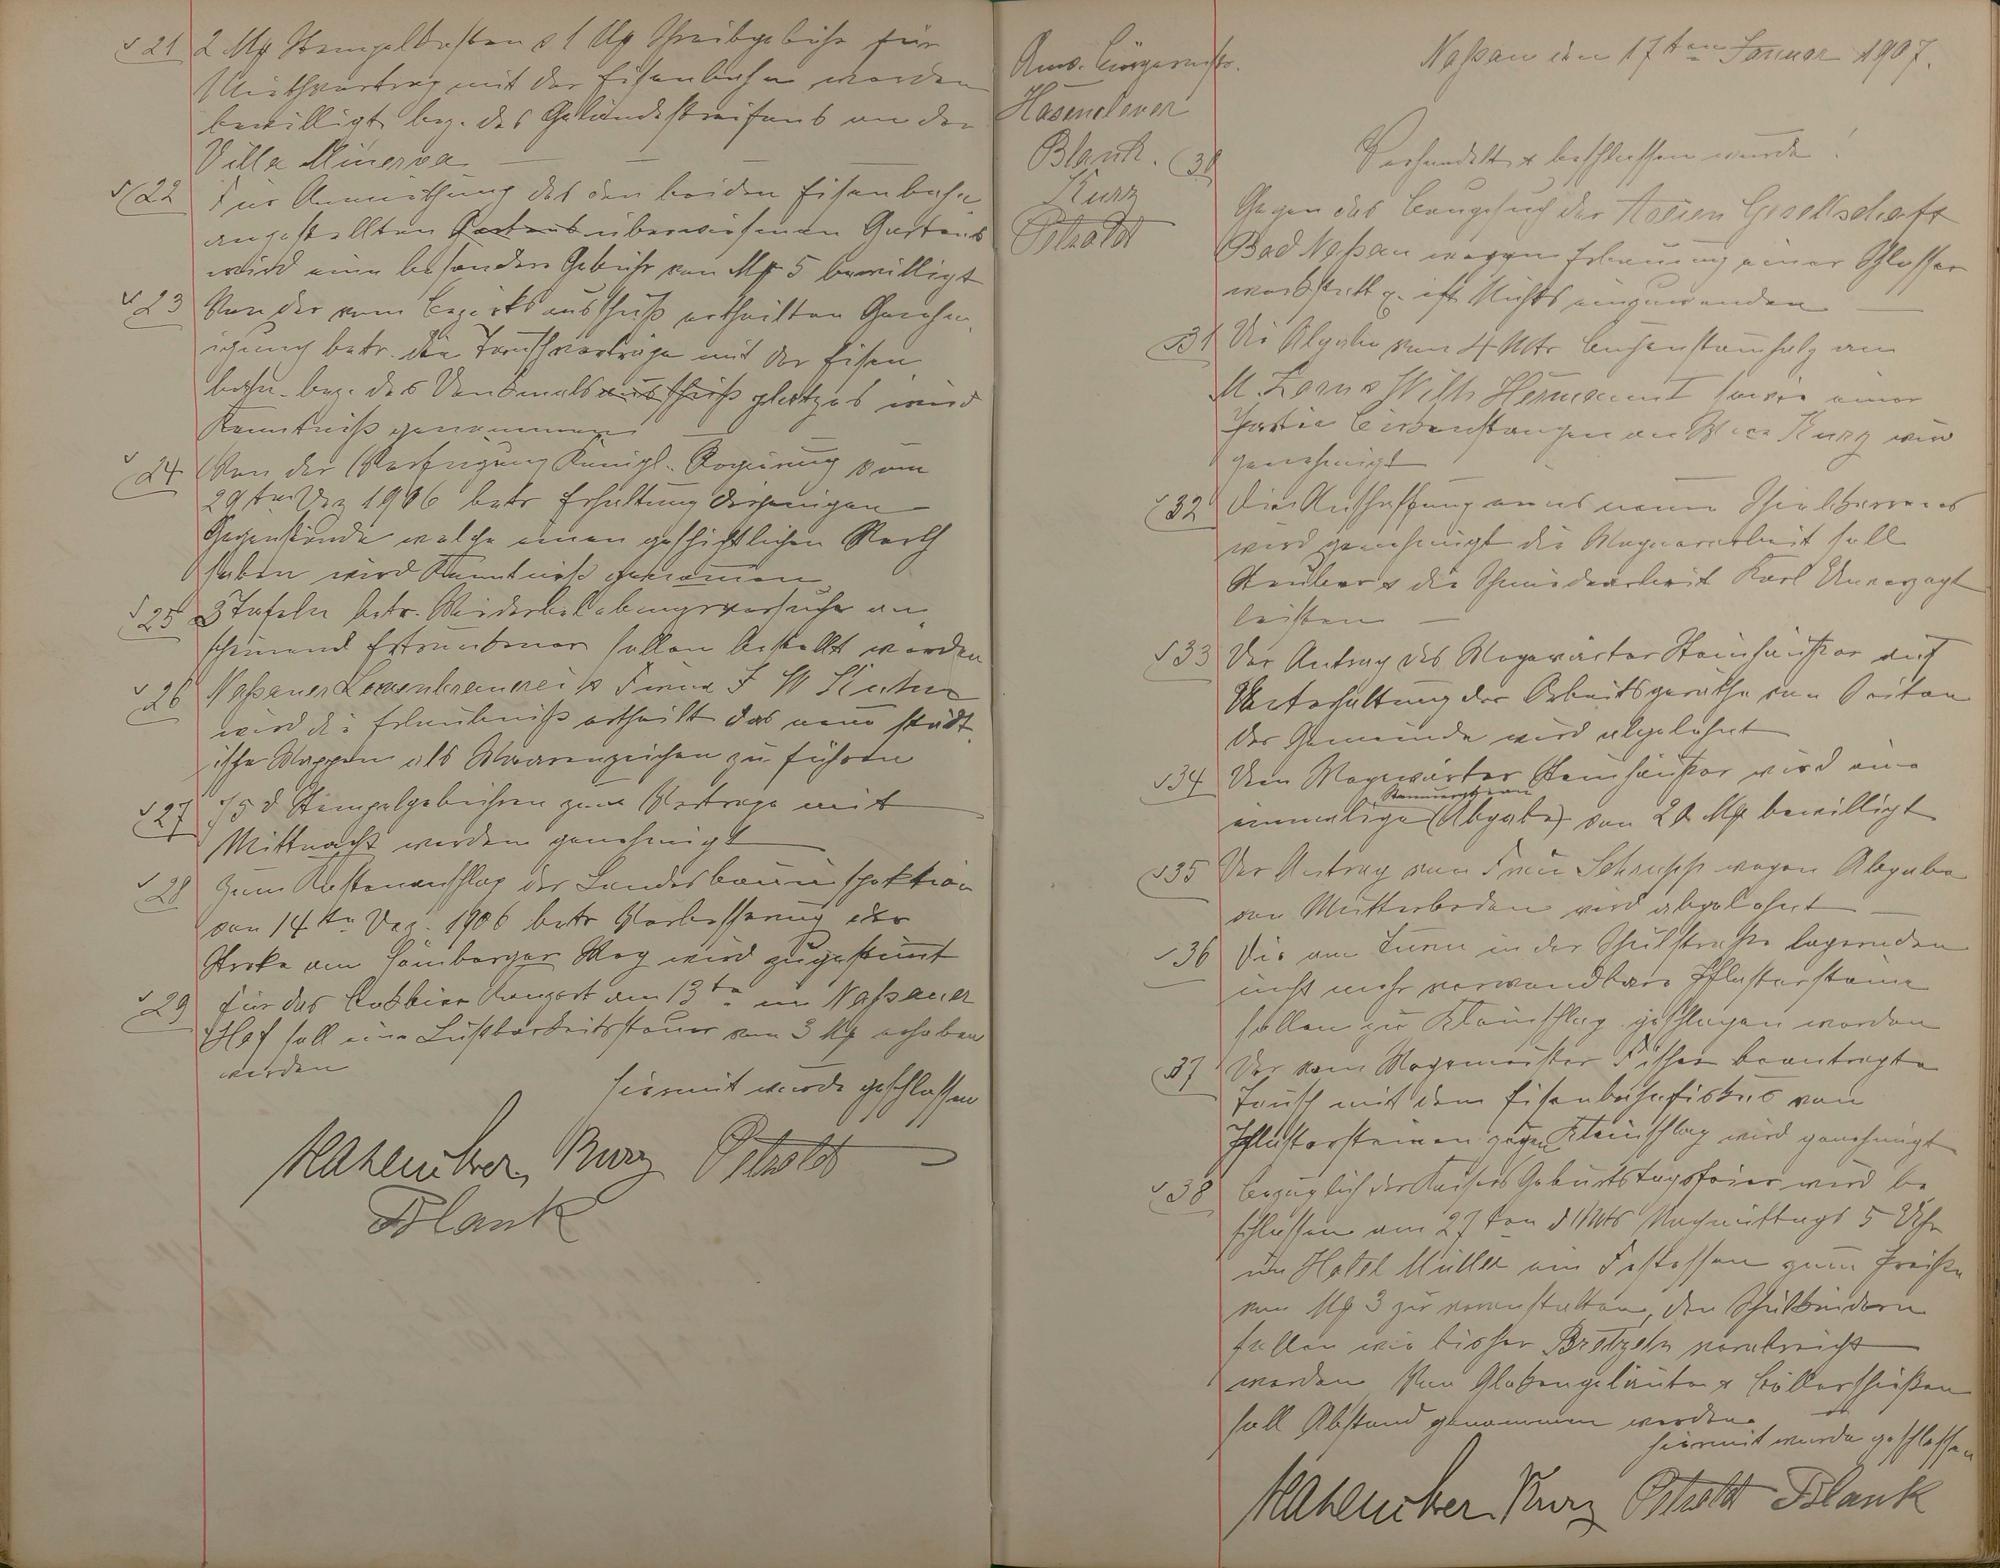 § 21 2 Mk Stempelkosten & 1 Mk Schreibgebühr für
Miethvertrag mit der Eisenbahn werden
bewilligt bez. des Geländestreifens an der
Villa Minerva
§ 22 Für Anmiethung des den beiden Eisenbahn
angestellten Gartens überwiesenen Gartens
wird eine besondere Gebühr von Mk 5 bewilligt
§ 23 Von der vom Bezirksausschuß ertheilten Genehm
igung betr. die Tauschverträge mit der Eisen
bahn bez. des Denkmalsausschuß platzes wird
Kenntniß genommen
§ 24 Von der Verfügung Königl. Regierung vom
29ten Dez 1906 betr Erhaltung derjenigen
Gegenstände welche einen geschichtlichen Werth
haben wird Kenntniß genommen
§ 25 3 Tafeln betr. Wiederbelebungsversuche an
scheinend Ertrunkener sollen bestellt werden
§ 26 Naßauer Löwenbrauerei & Firma J W Kuhn
wird die Erlaubniß ertheilt das neue städt
ische Wappen als Waarenzeichen zu führen
§ 27 Stempelgebühren zum Vertrage mit
Mittnacht werden genehmigt
§ 28 Zum Kostenanschlag der Landesbauinspektion
von 14ten Dez. 1906 betr Verbesserung der
Strecke am Hömberger Weg wird zugestimmt
§ 29 Für das Konzert am 13ten im Naßauer
Hof soll eine Lustbarkeitssteuer von 3 Mk erhoben
werden
hiermit wurde geschlossen
Hasenclever Kurz Petzoldt
Blank
Anw. Bürgermstr.
Hasenclever
Blank.
Kurz
Petzoldt
Naßau den 17ten Januar 1907.
Verhandelt & beschlossen wurde!
30
Gegen das Baugesuch der Actien Gesellschaft
Bad Naßau wegen Erbauung einer Schlosser
werkstatt ist Nichts einzuwenden
§ 31 Die Abgabe von 4 Mtr Buchenstammholz an
M. Zorn & Wilh Hermann I sowie einer
Partie Birkenstangen an Kurz wird
genehmigt
§ 32 Die Anschaffung eines neuen Schiebkarrens
wird genehmigt die Wagnerarbeit soll
Steuber & die Schmiedearbeit Karl Unverzagt
leisten
§ 33 Der Antrag des Wegewärter Steinhäußer auf
Unterhaltung der Arbeitsgeräthe von Seiten
der Gemeinde wird abgelehnt
§ 34 Dem Wegewärter Steinhäußer wird eine
einmalige (Abgabe) von 20 Mk bewilligt
§ 35 Der Antrag von Frau Schrupp wegen Abgabe
von Mutterboden wird abgelehnt
§ 36 Die am Turm in der Schulstraße lagernden
nicht mehr verwendbare Pflastersteine
sollen zu Kleinschlag geschlagen werden
§ 37 Der vom Wegemeister Fischer beantragte
Tausch mit dem Eisenbahnfiskus von
Pflastersteinen gegen Kleinschlag wird genehmigt
§ 38 Bezüglich der Kaisers Geburtstagsfeier wird be
schlossen am 27ten d Mts Nachmittags 5 Uhr
im Hotel Müller ein Festessen zum Preiße
von Mk 3 zu veranstalten, den Schulkindern
sollen wie bisher Bretzeln verabreicht
werden Von Glokengeläute & Böllerschießen
soll Abstand genommen werden
hiermit wurde geschlossen
Hasenclever Kurz Petzoldt Blank